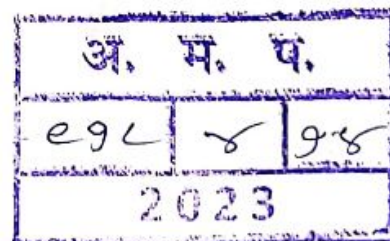 अ. म. प.
९१८ ४ १४
2023